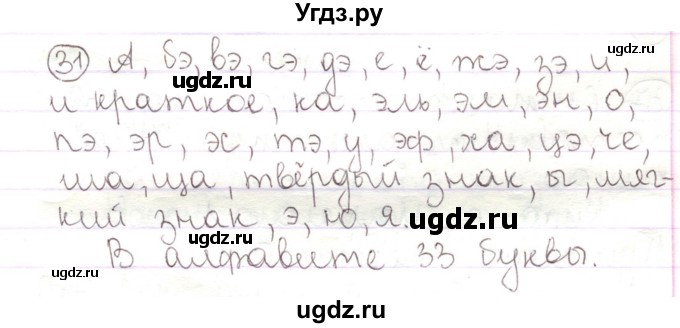 Угдз.ру
31 А, бэ, вэ, гэ, дэ, е, ё, жэ, зэ, и,
и краткое, ка, эль, эм, эн, о,
пэ, эр, эс, тэ, у, эф, ха, цэ, че,
ша, ща, твёрдый знак, ы, мяг-
кий знак, э, ю, я.
В алфавите 33 буквы.
ugdz.ru
ugdz.ru
ugdz.ru
ugdz.ru
ugdz.ru
ugdz.ru
ugdz.ru
ugdz.ru